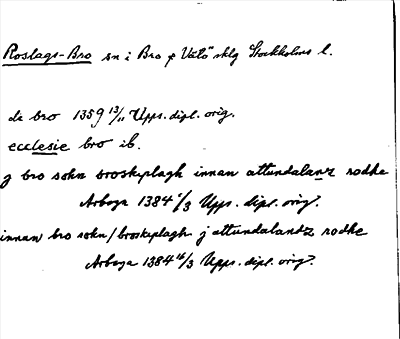 Roslags-Bro sn i Bro o Vätö sklg Stockholms l.
de bro 1359 13/11 Upps. dipl. orig.
ecclesie bro ib.
j bro sokn broskiplagh innan attundalanz rodhe
Arboga 1384 6/3 Upps. dipl. orig.
innan bro sokn/broskiplagh j attundalandz rodhe
Arboga 1384 6/3 Upps. dipl. orig.